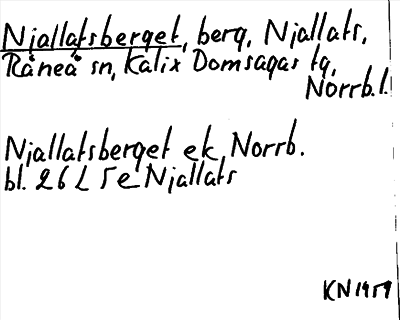 Njallatsberget, berg, Njallats,
Råneå sn, Kalix Domsagas tg,
Norrb. l.
Njallatsberget ek, Norrb.
bl. 26 L 5 e Njallats
KN 1959